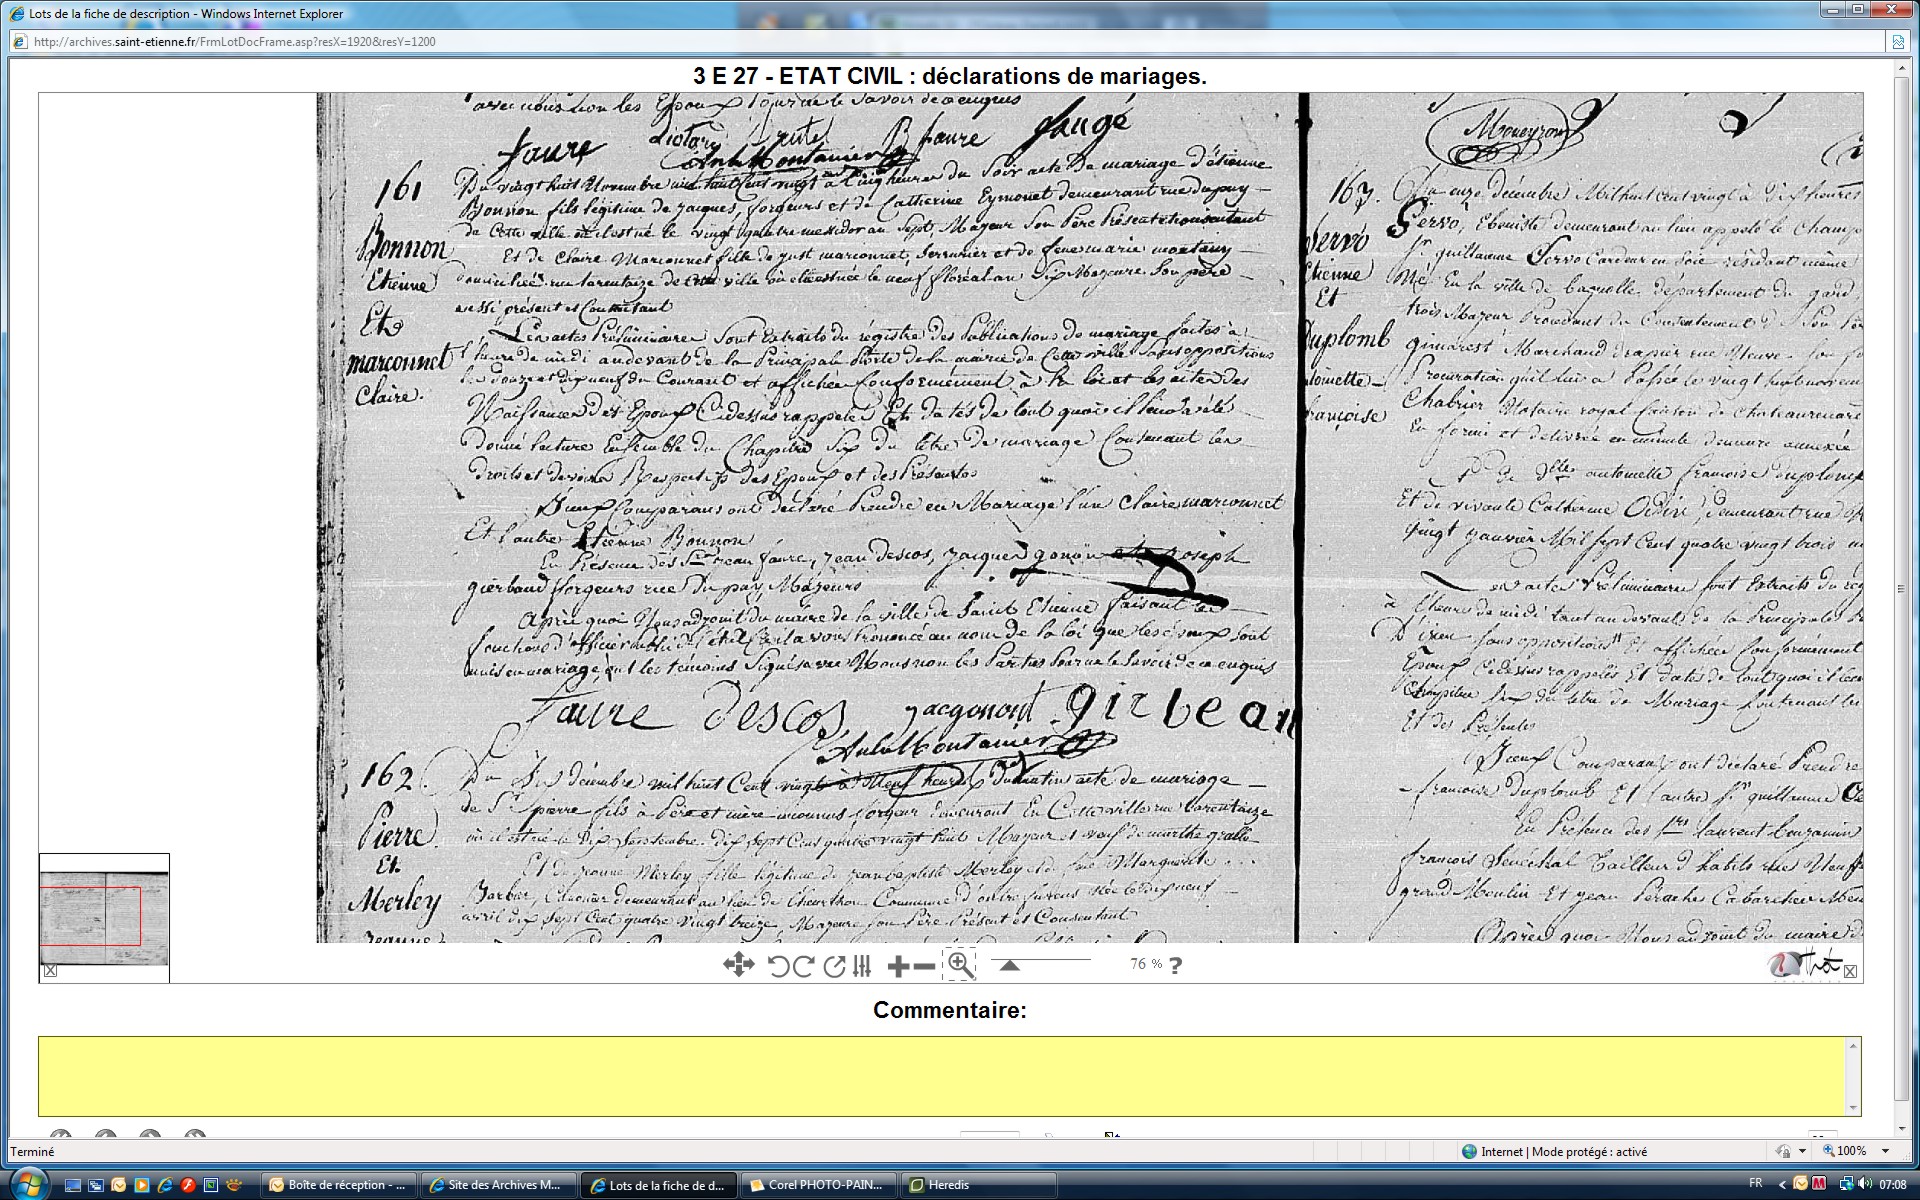 Lots de la fiche de description - Windows Internet Explorer
http://archives.saint-etienne.fr/FrmLotDocFrame.asp?resX=1920&resY=1200
3 E 27 - ETAT CIVIL : déclarations de mariages.
faure B faure faugé
161
Bonnon
Etienne
Et
marconnet
Claire.
Du vingt huit Novembre mil huit cent vingt à cinq heures du Soir acte de mariage d'étienne
Bonnon fils légitime de jacques, forgeurs et de Catherine Eymonet demeurant rue dupuy
de Cette ville où il est né le vingt quatre messidor an Sept, Majeur Son Père Présent et consentant
Et de Claire Marconnet fille de just marconnet, Serrurier et de feue marie montany
domiciliée rue tarentaize de Cette ville où elle est née le neuf floréal an Six Majeure Son père
aussi présent et Consentant
Les actes Préliminaires Sont Extraits du régistre des Publications de mariage faites à
l'heure de midi au devant de la Principale Porte de la mairie de Cette ville Sans oppositions
les douze et dix neuf du Courant et affichées Conformément à la loi et les actes des
Naissances des Epoux Cidessus rappelés Et datés de tout quoi il leur a été
donné lecture Ensemble du Chapitre Six du titre de mariage Contenant les
droits et devoirs Respectifs des Epoux et des Présentes
Iceux Comparans ont déclaré Prendre en Mariage l'un Claire marconnet
Et l'autre Etienne Bonnon
En Présence des Srs jean faure, jean descos, jacques gonon et joseph
gierbaud forgeurs rue Dupuy Majeurs
Après quoi Nous adjoint du maire de la ville de Saint Etienne faisant les
fonctions d'officier public de l'état Civil avons Prononcé au nom de la loi que les époux sont
unis en mariage, ont les témoins Signés avec Nous non les Parties Pour ne le Savoir de ce enquis
faure descos jacgonont girbean
162
Pierre
Et
Merley
Jeanne
Du Six décembre mil huit Cent vingt à Neuf heures Du matin acte de mariage
de St pierre fils à Père et mère inconnus forgeur demeurant En Cette ville rue tarentaize
où il est né le Dix Septembre dix Sept Cent quatre vingt huit Majeur et veuf de marthe
Et De jeanne Merley fille légitime de jean baptiste Merley et de feue Marguerite
Barbier, demeurant au lieu de Commune d'outre furens née le dix neuf
avril dix Sept Cent quatre vingt treize Majeure Son Père Présent et Consentant
Moueyron
163.
Servo
Etienne
Et
Duplomb
toinette
françoise
Du onze décembre Mil huit cent vingt à Dix heures
Servo, Ebeniste demeurant au lieu appelé le Champ
Sr guillaume Servo Cardeur en Soie résidant même
Né En la ville de bagnolle département du gard
trois Majeur Procédant du Consentement
Marchand drapier rue Neuve
Procuration qu'il lui a Passée le vingt huit novem
Chabrier Notaire royal
En forme et délivrée en minute demeure annexée
Et de Dlle antoinette françoise duplomb
Et de vivante Catherine Odin, demeurant rue
vingt janvier Mil Sept Cent quatre vingt trois
Les actes Préliminaires Sont Extraits du reg
à l'heure de midi tant au devant De la Principale
Sans oppositions Et affichées Conformément
Epoux Cidessus rappelés Et datés de tout quoi il leur
Chapitre Six du titre de Mariage Contenant les
Et des Présentes
Iceux Comparans ont déclaré Prendre
françoise Duplomb Et l'autre Sr guillaume
En Présence des Srs laurent
françois Sénéchal Tailleur d'habits rue Neuf
grand Moulin Et jean Cabaretier
Après quoi Nous adjoint du maire d
76 % ?
Commentaire:
Terminé
Internet | Mode protégé : activé
100%
Boîte de réception - ...
Site des Archives M...
Lots de la fiche de d...
Corel PHOTO-PAIN...
Heredis
FR
07:08